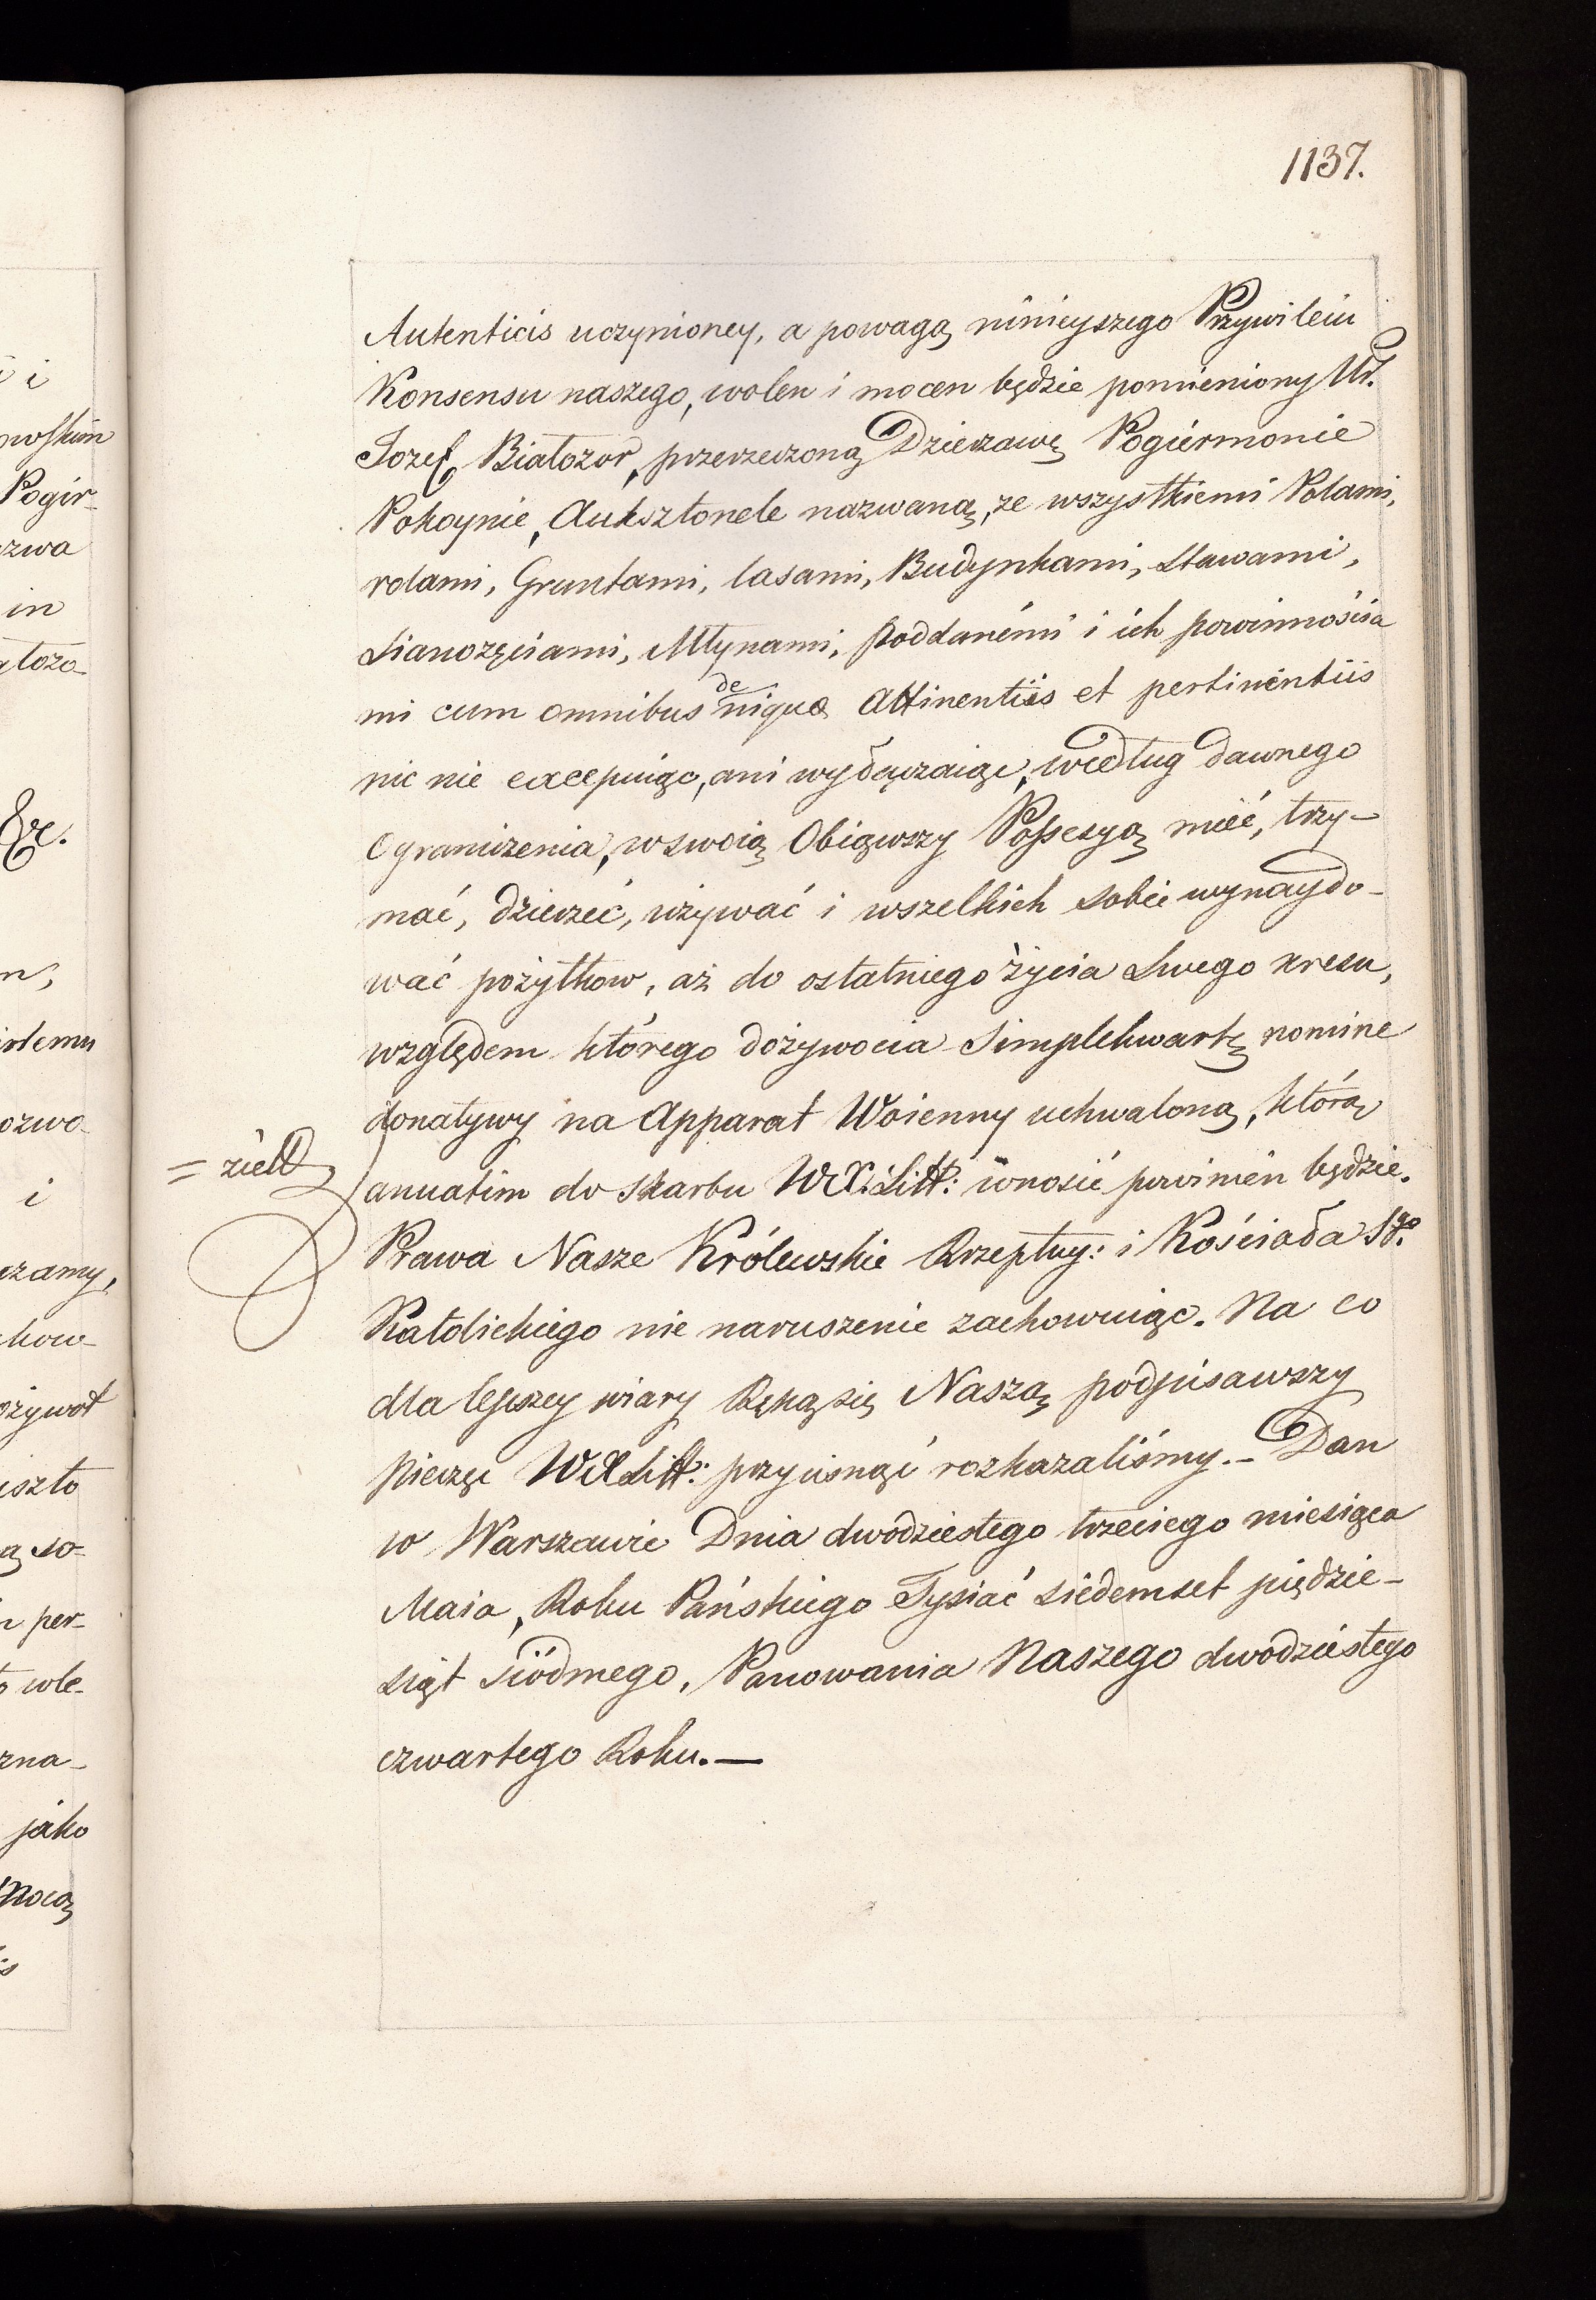 i i
nowskim
Pogir-
zwa
in
ałozo-
&c.
m,
istemu
ozwo-
i
czamy,
chow-
ożywot
iszto
ą so-
n per-
o wle-
zna-
jako
Mocą
is
1137.
Autenticis uczynioney, a powagą ninieyszego Przywileiu
Konsensu naszego, wolen i mocen będzie pomieniony Ur.
Jozef Białozor, przerzeczoną Dzierzawę Pogiermonie
Pokoynie, Auksztonele nazwaną, ze wszystkiemi Polami,
rolami, Gruntami, lasami, Budynkami, Stawami,
Sianozęciami, Młynami, Poddanémi i ich powinnościa
mi cum omnibus denique attinentiis et pertinentiis
nic nie excepuiąc, ani wyłączaiąc, według dawnego
Ograniczenia, w swoią Obiąwszy Possesyą mieć, trzy-
mać, dzierżeć, używać i wszelkich sobie wynaydo-
wać pożytkow, aż do ostatniego życia Swego kresu,
względem którego dożywocia Simplekwartę nomine
donatywy na Apparat Woienny uchwaloną, którą
= zieLL
anuatim do Skarbu WXLitt: wnosić powinien będzie.
Prawa Nasze Królewskie Rzepltey: i Kościoła Sgo.
Katolickiego nie naruszenie zachowuiąc. Na co
dla lepszey wiary Ręką się Naszą podpisawszy
pieczęć WXLitt: przycisnąć rozkazaliśmy.- Dan
w Warszawie Dnia dwodziestego trzeciego miesiąca
Maia, Roku Pańskiego Tysiać siedemset pięđzie-
siąt siódmego, Panowania Naszego dwodziestego
czwartego Roku.—